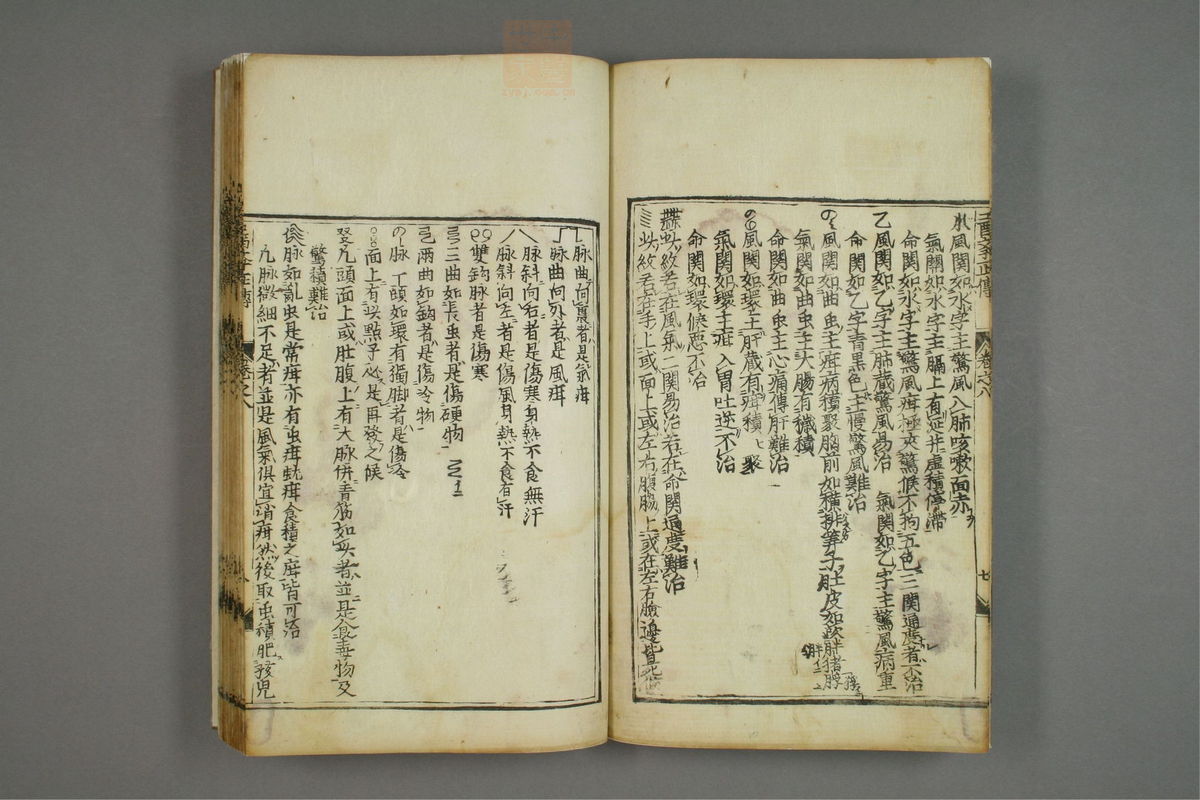 醫學正傳 卷之八 七
水 風關如水字主驚風入肺咳嗽面赤
氣關如水字主膈上有涎并虛積停滯
命關如水字主驚風疳極夾驚候不拘五色三關通度者不治
乙 風關如乙字主肺藏驚風易治 氣關如乙字主驚風病重
命關如乙字青黑色主慢驚風難治
風關如曲虫主疳病積聚胸前如横排筭子肚皮如吹脬猪脬
氣關如曲虫主大腸有穢積
命關如曲虫主心痛傳肝難治
風關如環主肝藏有疳積聚
氣關如環主疳入胃吐逆不治
命關如環候惡不治
此紋若在風氣二關易治若在命關通度難治
此紋若在手上或面上或左右腹脇上或在左右臉邊皆
脉曲向裏者是氣疳
脉曲向外者是風疳
脉斜向右者是傷寒身熱不食無汗
脉斜向左者是傷風身熱不食有汗
雙鈎脉者是傷寒
三曲如長虫者是傷硬物
兩曲如鈎者是傷冷物
脉一頭如環有獨脚者是傷冷
面上有此點子必是再發之候
凡頭面上或肚腹上有大脉併青筋如此者並是食毒物及
驚積難治
脉如亂虫是常疳亦有虫疳蚘疳食積之疳皆可治
凡脉微細不足者並是風氣俱宜消疳然後取虫積肥孩兒
醫學正傳 卷之八 八